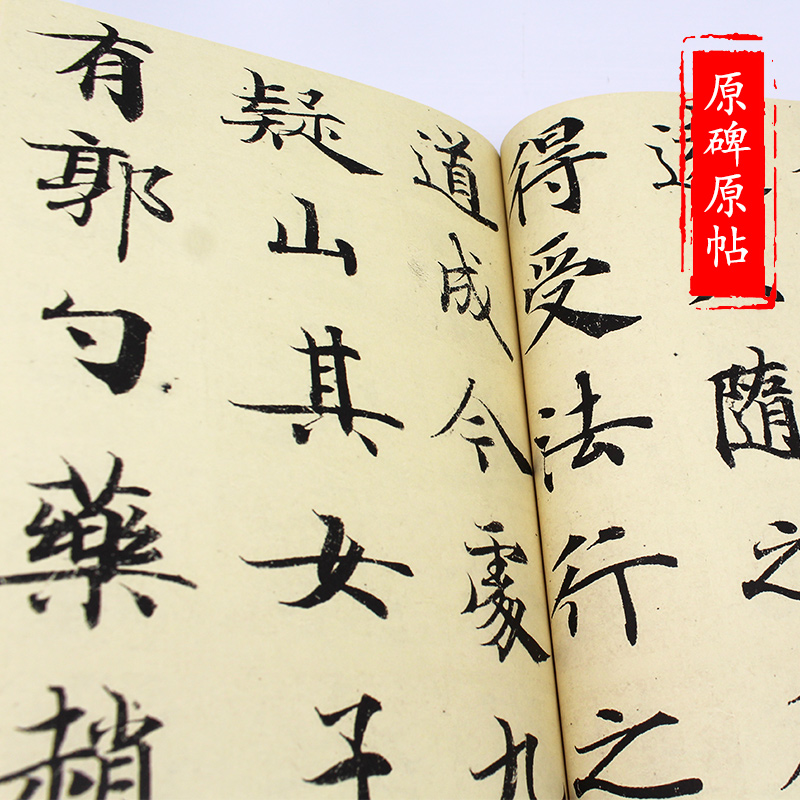 原碑原帖
隨之
得受法行之
道成今處九
疑山其女子
有郭勺藥趙